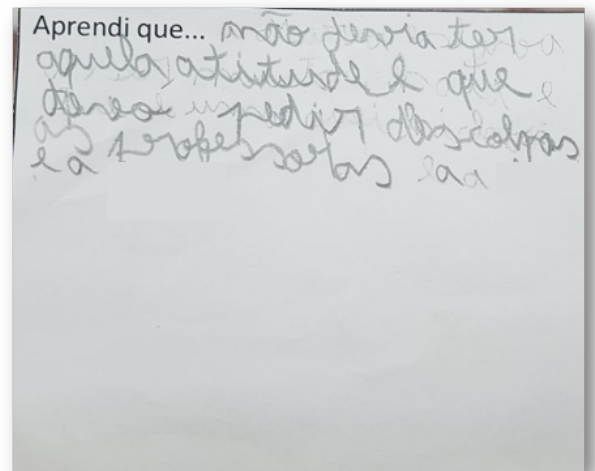 Aprendi que... não devia ter
aquela atitude e que
devo pedir desculpas
as professoras
e a